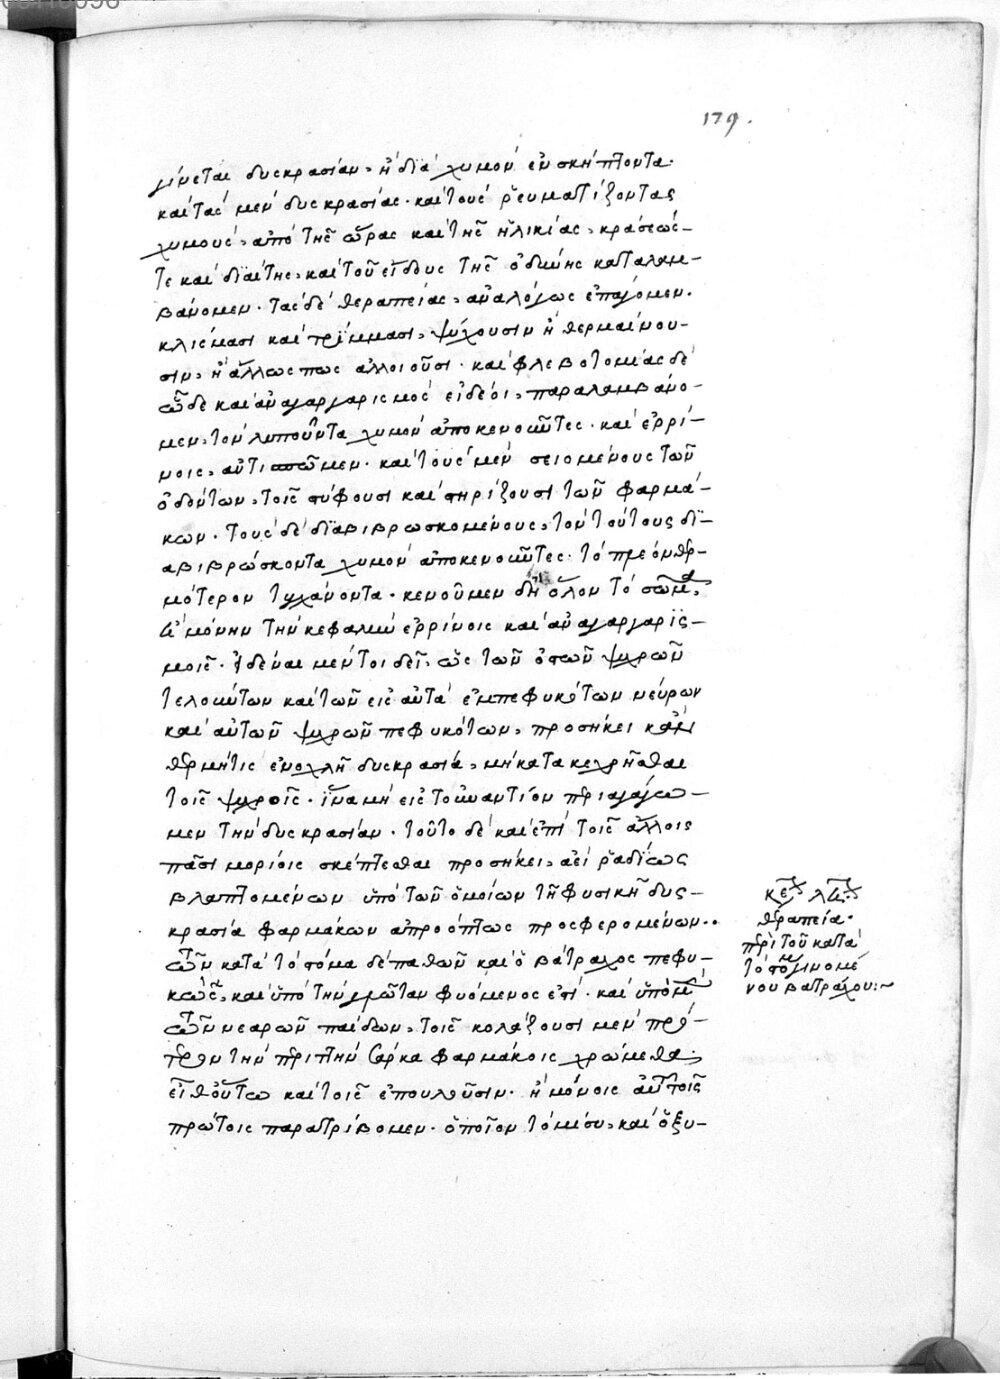 179.
γίνεται δυσκρασίαν, ἢ διὰ χυμὸν ἐνσκήπτοντα.
καὶ τὰς μὲν δυσκρασίας. καὶ τοὺς ῥευματίζοντας
χυμοὺς, ἀπὸ τῆς ὥρας καὶ τῆς ἡλικίας, κράσεώς-
τε καὶ διαίτης, καὶ τοῦ εἴδους τῆς ὀδύνης καταλαμ-
βάνομεν. τὰς δὲ θεραπείας, ἀναλόγως ἐπάγομεν.
κλύσμασι καὶ τρίμμασι, ψύχουσιν ἢ θερμαίνου-
σιν, ἢ ἄλλως πως ἀλλοιοῦσι. καὶ φλεβοτομίας δὲ
ὧδε καὶ ἀναγαργαρισμὸς εἰ δέοι, παραλαμβάνο-
μεν, τὸν λυποῦντα χυμὸν ἀποκενοῦντες. καὶ ἐρρί-
νοις, ἀντισπῶμεν. καὶ τοὺς μὲν σειομένους τῶν
ὀδόντων, τοῖς στύφουσι καὶ στηρίζουσι τῶν φαρμά-
κων. τοὺς δὲ διαβιβρωσκομένους, τὸν τούτους δι-
αβιβρώσκοντα χυμὸν ἀποκενοῦντες. τὸ πρεόνθερ-
μότερον τυγχάνοντα. κενοῦμεν δὴ ὅλον τὸ σῶμα,
ἢ μόνην τὴν κεφαλὴν ἐρρίνοις καὶ ἀναγαργαρισ-
μοῖς. εἰδέναι μέντοι δεῖ, ὡς τῶν ὀστῶν ψυχρῶν
τελούντων καὶ τῶν εἰς αὐτὰ ἐμπεφυκότων νεύρων
καὶ αὐτῶν ψυχρῶν πεφυκότων, προσήκει κἂν
θερμήτις ἐνοχλῆ δυσκρασία, μὴ κατακεχρῆσθαι
τοῖς ψυχροῖς. ἵνα μὴ εἰς τοὐναντίον περιαγάγω-
μεν τὴν δυσκρασίαν. τοῦτο δὲ καὶ ἐπὶ τοῖς ἄλλοις
πᾶσι μορίοις σκέπτεσθαι προσήκει, ἀεὶ ῥαδίως
βλαπτομένων ὑπὸ τῶν ὁμοίων τῇ φυσικῇ δυς-
κρασία φαρμάκων ἀπροόπτως προσφερομένων..
τῶν κατὰ τὸ στόμα δὲ παθῶν καὶ ὁ βάτραχος πεφυ-
κὼς, καὶ ὑπὸ τὴν γλῶτταν φυόμενος ἐστί. καὶ
τῶν νεαρῶν παίδων, τοῖς κολάζουσι μὲν πρό-
τερον τὴν περιττὴν σάρκα φαρμάκοις χρώμεθα,
εἶθ' οὕτω καὶ τοῖς ἐπουλοῦσιν. ἢ μόνοις αὐτοῖς
πρώτοις παρατρίβομεν. ὁποῖον τὸ μίσυ, καὶ ὀξυ-
θεραπεία.
περὶ τοῦ κατὰ
τὸ στόμα γινομέ
νου βατράχου:~